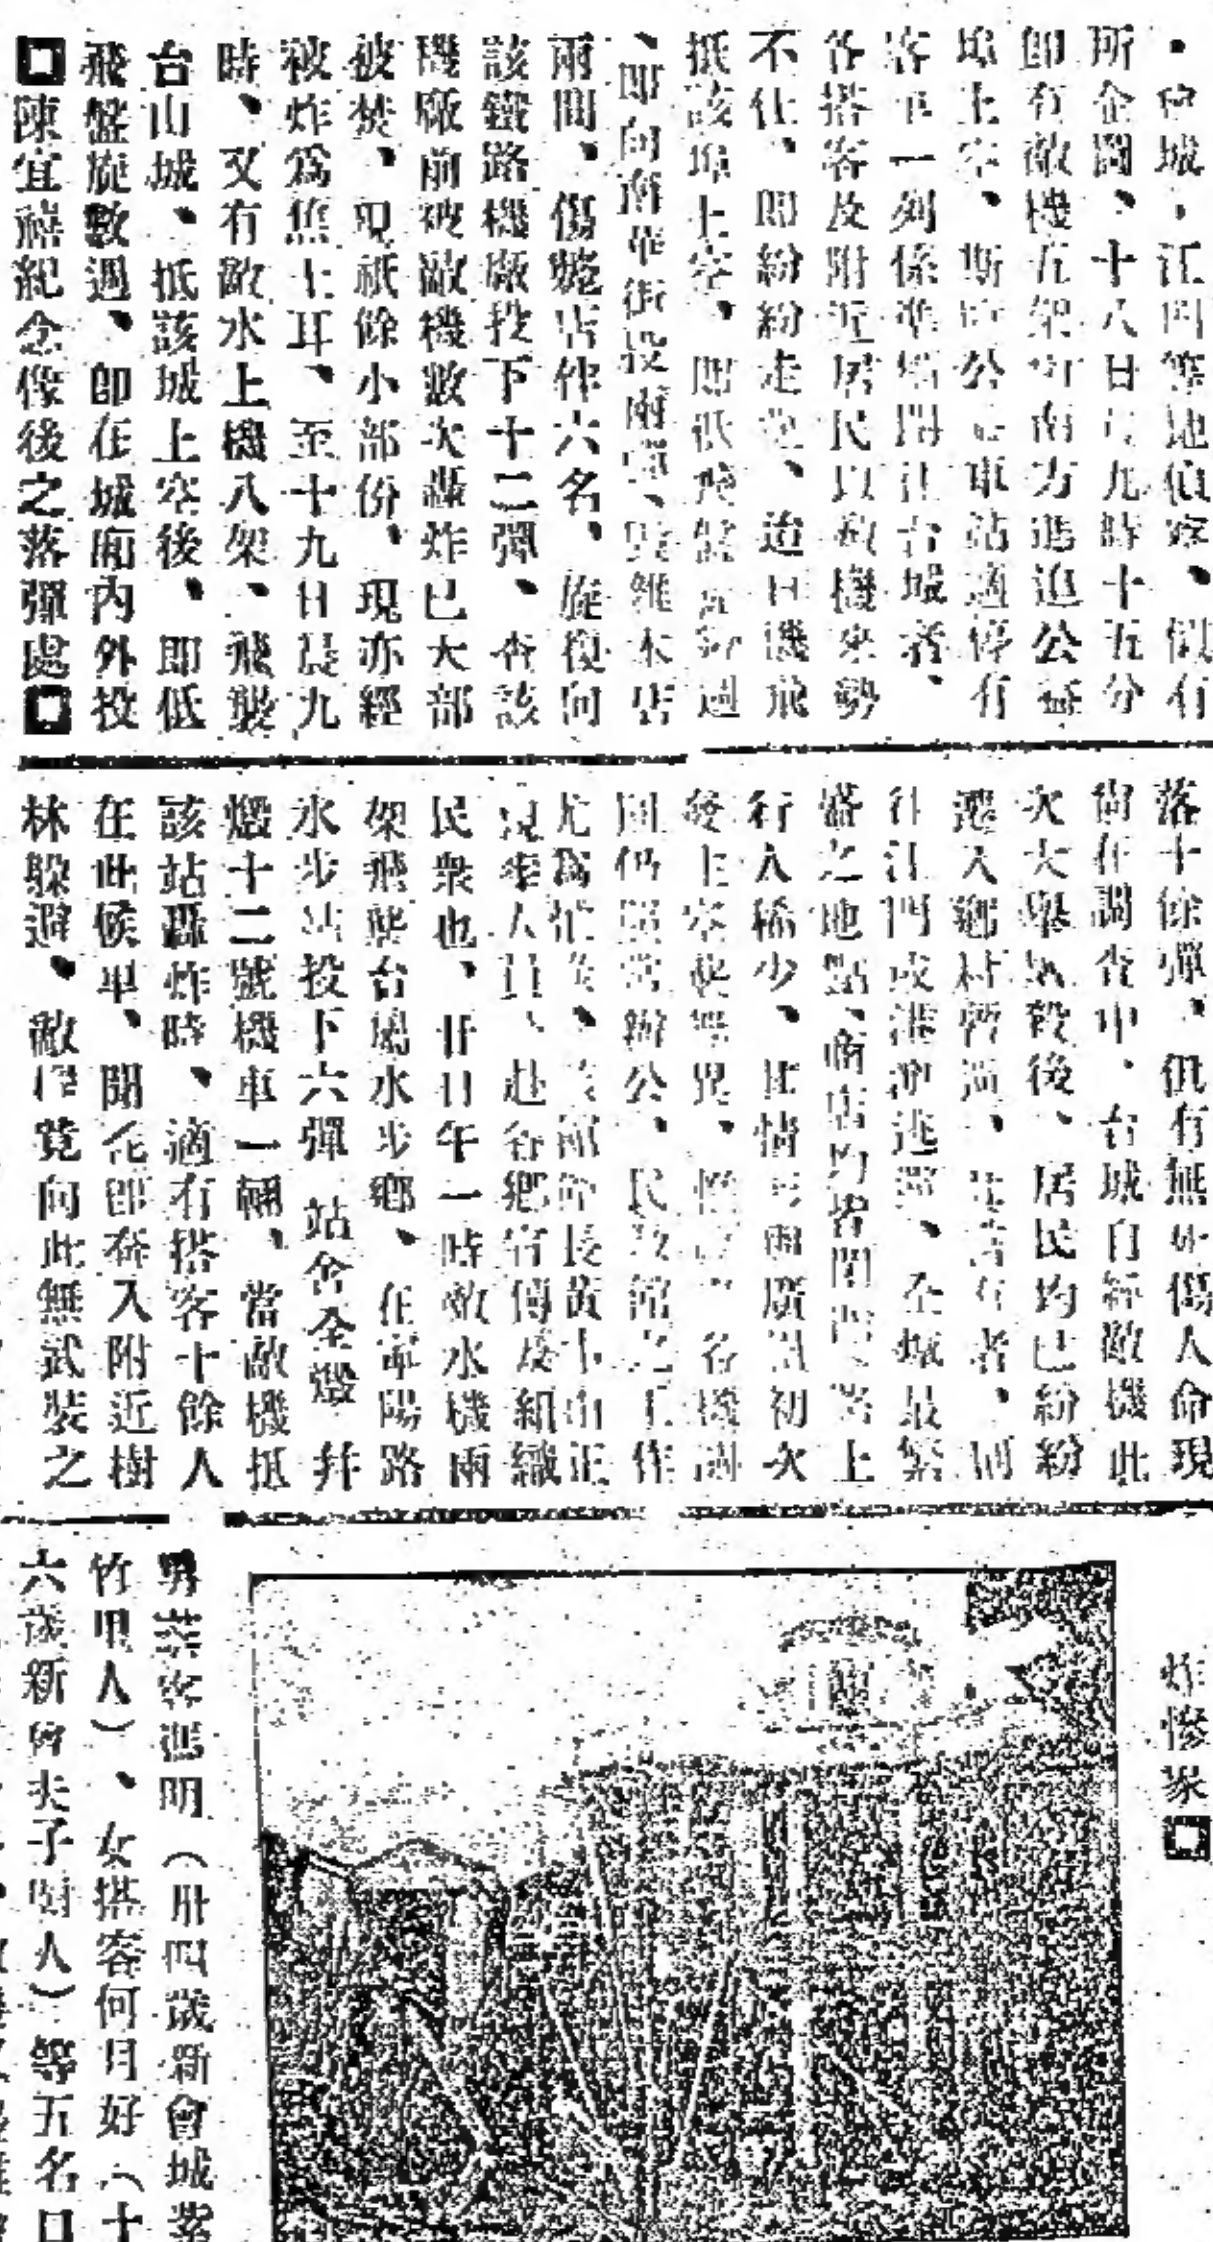 城、江門等地偵察、似有
所企圖、十八日上九時十五分
即有敵機五架向南方進迫公益
埠上空、斯時公益車站適停有
客車一列係準備開往台城者、
各搭客及附近居民以敵機來勢
不佳、即紛紛走避、迨日機飛
抵該埠上空、即低飛盤旋數週
、即向南華街投兩彈、毀雜木店
兩間、傷斃店伴六名、旋復向
該鐵路機廠投下十二彈、查該
機廠前被敵機數次轟炸已大部
被焚、現祇餘小部份、現亦經
被炸爲焦土耳、至十九日晨九
時、又有敵水上機八架、飛襲
台山城、抵該城上空後、即低
飛盤旋數週、即在城廂內外投
陳宜禧紀念像後之落彈處
落十餘彈、俱有無炸傷人命現
尚在調查中、台城自經敵機此
次大舉轟殺後、居民均已紛紛
遷入鄉村暫避、者、同
往江門或港澳逃避、全城最繁
盛之地點、商店均皆閉門、路上
行人稀少、此情與廣州初次
受上空襲無異、各機關
仍照常辦公、民敎館之工作
尤爲忙、館長黃 山正
見率人員、赴各鄉宣傳及組織
民衆也、廿日午一時敵水機兩
架飛襲台屬水步鄉、在寧陽路
水步站投下六彈 站舍全燬 幷
燬十二號機車一輛、當敵機抵
該站轟炸時、適有搭客十餘人
在此候車、聞 即奔入附近樹
林躲避、敵 竟向此無武裝之
炸慘象
男搭客馮明（卅四歲新會城紫
竹里人）、女搭客何月好（十
六歲新會夫子廟人）等五名口